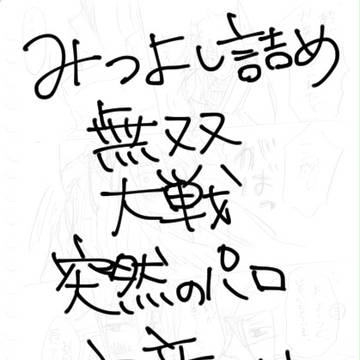 みつよし詰め
無双
大戦
突然のパロ